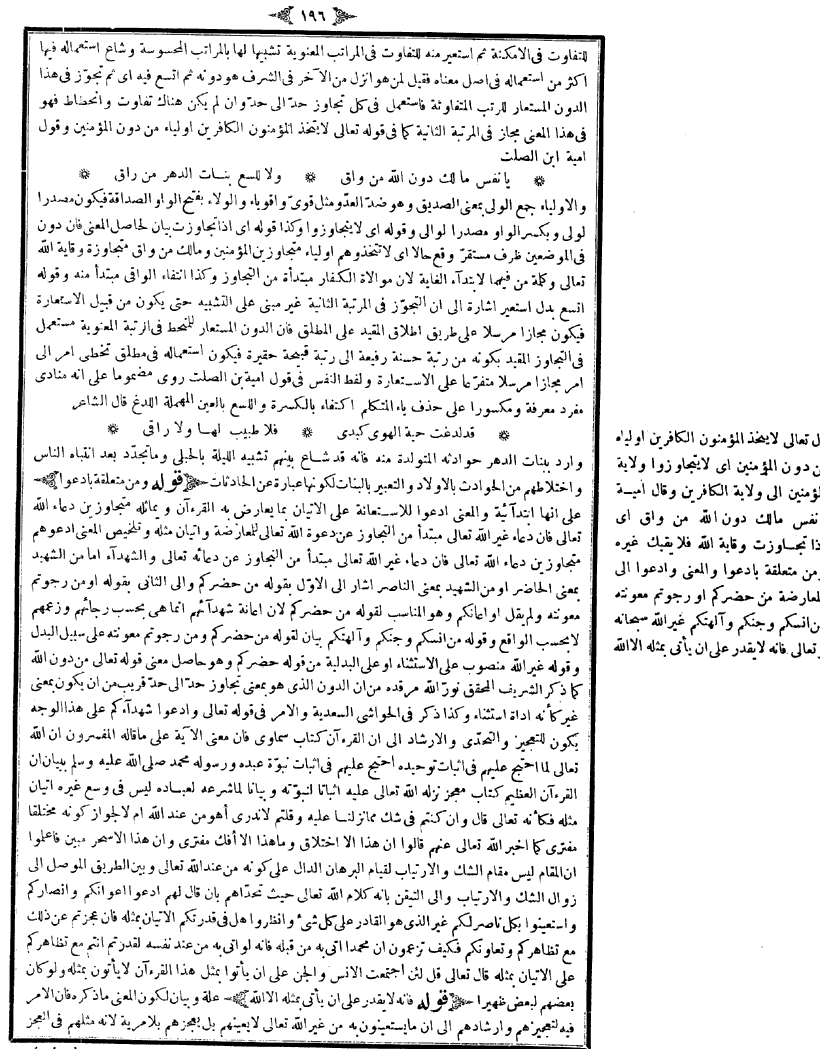 ١٩٦
للتفاوت فى الامكنة ثم استعير منه للتفاوت فى المراتب المعنوية تشبيها لها بالمراتب المحسوسة وشاع استعماله فيها
اكثر من استعماله فى اصل معناه فقيل لمن هو انزل من الآخر فى الشرف هو دونه ثم اتسع فيه اى ثم تجوّز فى هذا
الدون المستعار للرتب المتفاوتة فاستعمل فى كل تجاوز حدّ الى حدّ وان لم يكن هناك تفاوت وانحطاط فهو
فى هذا المعنى مجاز فى المرتبة الثانية كما فى قوله تعالى لايتخذ المؤمنون الكافرين اولياء من دون المؤمنين وقول
امية ابن الصلت
يا نفس مالك دون الله من واق ولا للسع بنات الدهر من راق
والاولياء جمع الولى بمعنى الصديق وهو ضدّ العدّو مثل قوىّ واقوياء والولاء بفتح الواو الصداقة فيكون مصدرا
لولى وبكسر الواو مصدرا لوالى وقوله اى لايتجاوزوا وكذا قوله اى اذا تجاوزت بيان لحاصل المعنى فان دون
فى الموضعين ظرف مستقرّ وقع حالا اى لاتتخذوهم اولياء متجاوزين المؤمنين ومالك من واق متجاوزة وقاية الله
تعالى وكلمة من فيهما لابتدآء الغاية لان موالاة الكفار مبتدأة من التجاوز وكذا انتفاء الواقى مبتدأ منه وقوله
اتسع بدل استعير اشارة الى ان التجوّز فى المرتبة الثانية غير مبنى على التشبيه حتى يكون من قبيل الاستعارة
فيكون مجازا مرسلا على طريق اطلاق المقيد على المطلق فان الدون المستعار للمنحط فى الرتبة المعنوية مستعمل
فى التجاوز المقيد بكونه من رتبة حسنة رفيعة الى رتبة قبيحة حقيرة فيكون استعماله فى مطلق تخطى امر الى
امر مجازا مرسلا متفرّعا على الاستعارة ولفظ النفس فى قول امية بن الصلت روى مضموما على انه منادى
مفرد معرفة ومكسورا على حذف ياء المتكلم اكتفاء بالكسرة واللسع بالعين المهملة اللدغ قال الشاعر
قد لدغت حية الهوى كبدى فلا طبيب لها ولا راقى
وارد ببنات الدهر حوادثه المتولدة منه فانه قد شاع بينهم تشبيه الليلة بالحبلى وما تجدّد بعد انتباه الناس
واختلاطهم من الحوادث بالاولاد والتعبير بالبنات لكونها عبارة عن الحادثات قوله ومن متعلقة بادعوا
على انها ابتدآئية والمعنى ادعوا للاستعانة على الاتيان بما يعارض به القرءآن ويماثله متجاوزين دعاء الله
تعالى فان دعاء غير الله تعالى مبتدأ من التجاوز عن دعوة الله تعالى للمعارضة واتيان مثله وتلخيص المعنى ادعوهم
متجاوزين دعاء الله تعالى فان دعاء غير الله تعالى مبتدأ من التجاوز عن دعائه تعالى والشهدآء اما من الشهيد
بمعنى الحاضر او من الشهيد بمعنى الناصر اشار الى الاوّل بقوله من حضركم والى الثانى بقوله او من رجوتم
معونته ولم يقل او اعانكم وهو المناسب لقوله من حضركم لان اعانة شهدآئهم انما هى بحسب رجائهم وزعمهم
لا بحسب الواقع وقوله من انسكم وجنكم وآلهتكم بيان لقوله من حضركم ومن رجوتم معونته على سبيل البدل
وقوله غير الله منصوب على الاستثناء او على البدلية من قوله من حضركم وهو حاصل معنى قوله تعالى من دون الله
كما ذكر الشريف المحقق نورّ الله مرقده من ان الدون الذى هو بمعنى تجاوز حدّ الى حدّ قريب من ان يكون بمعنى
غير كأنه اداة استثناء وكذا ذكر فى الحواشى السعدية والامر فى قوله تعالى وادعوا شهدآءكم على هذا الوجه
يكون للتعجيز والتحدّى والارشاد الى ان القرءآن كتاب سماوى فان معنى الآية على ماقاله المفسرون ان الله
تعالى لما احتج عليهم فى اثبات توحيده احتج عليهم فى اثبات نبوّة عبده ورسوله محمد صلى الله عليه وسلم ببيان ان
القرءآن العظيم كتاب معجز نزله الله تعالى عليه اثباتا لنبوّته وبيانا لما شرعه لعباده ليس فى وسع غيره اتيان
مثله فكأنه تعالى قال وان كنتم فى شك مما نزلنا عليه وقلتم لاندرى أهو من عند الله ام لا لجواز كونه مختلقا
مفترى كما اخبر الله تعالى عنهم قالوا ان هذا الا اختلاق وما هذا الا أفك مفترى وان هذا الاسحر مبين فاعلموا
ان المقام ليس مقام الشك والارتياب لقيام البرهان الدال على كونه من عند الله تعالى وبين الطريق الموصل الى
زوال الشك والارتياب والى التيقن بانه كلام الله تعالى حيث تحدّاهم بان قال لهم ادعوا اعوانكم وانصاركم
واستعينوا بكل ناصر لكم غير الذى هو القادر على كل شئ وانظروا هل فى قدرتكم الاتيان بمثله فان عجزتم عن ذلك
مع تظاهركم وتعاونكم فكيف تزعمون ان محمدا اتى به من قبله فانه لو اتى به من عند نفسه لقدرتم انتم مع تظاهركم
على الاتيان بمثله قال تعالى قل لئن اجتمعت الانس والجن على ان يأتوا بمثل هذا القرءآن لايأتون بمثله ولو كان
بعضهم لبعض ظهيرا قوله فانه لايقدر على ان يأتى بمثله الا الله علة وبيان لكون المعنى ماذكره فان الامر
فيه لتعجيزهم وارشادهم الى ان مايستعينون به من غير الله تعالى لايعينهم بل يعجزهم بلا مرية لانه مثلهم فى العجز
ل تعالى لايتخذ المؤمنون الكافرين اولياء
ن دون المؤمنين اى لايتجاوزوا ولاية
لؤمنين الى ولاية الكافرين وقال امية
نفس مالك دون الله من واق اى
ذا تجاوزت وقاية الله فلا يقيك غيره
من متعلقة بادعوا والمعنى وادعوا الى
لمعارضة من حضركم او رجوتم معونته
ن انسكم وجنكم وآلهتكم غير الله سبحانه
تعالى فانه لايقدر على ان يأتى بمثله الا الله